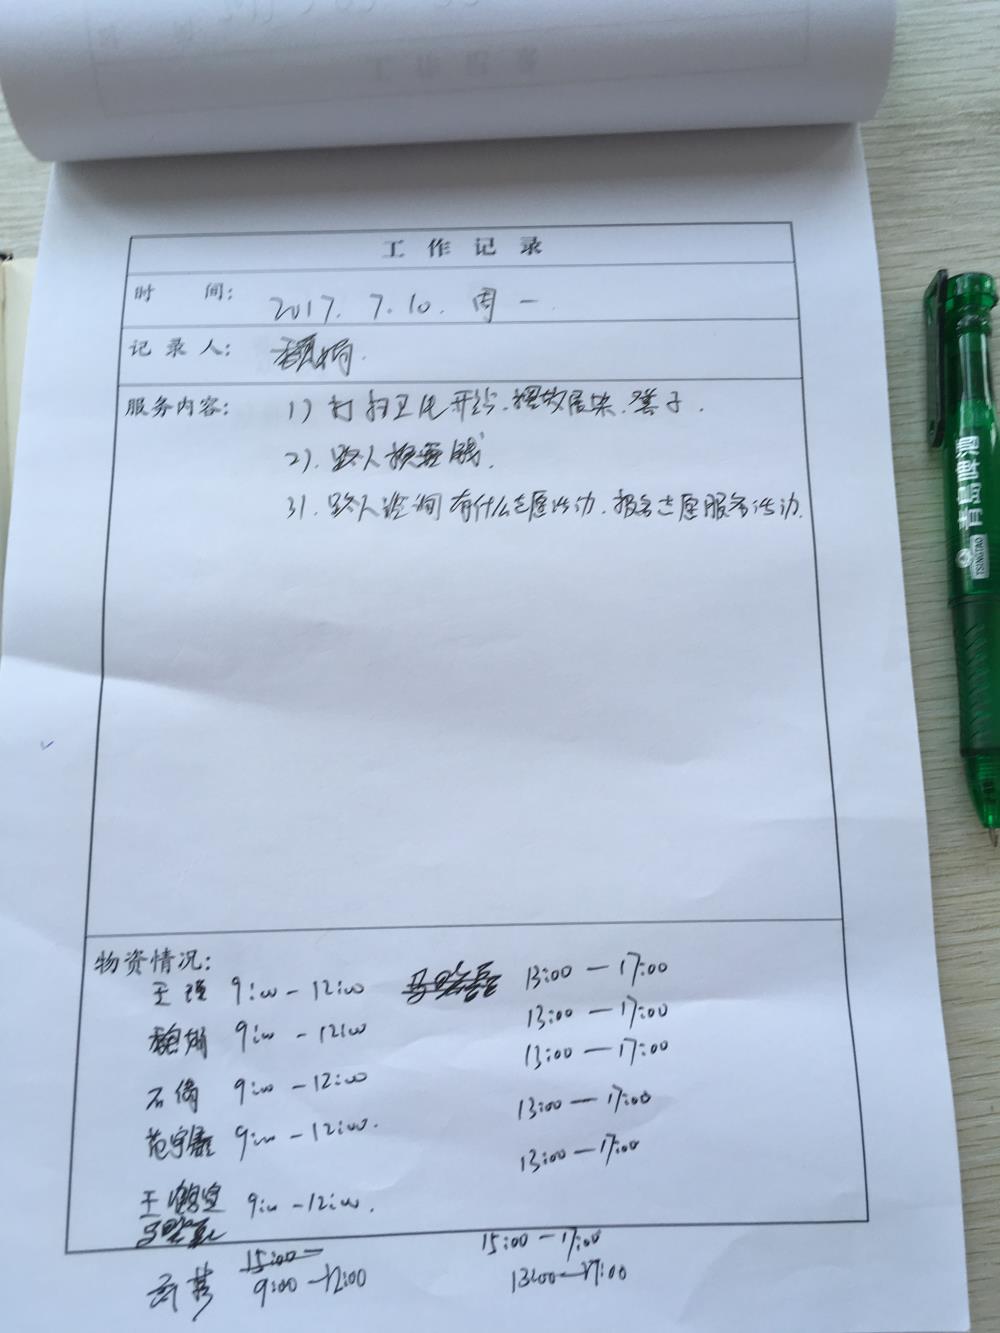 工作记录
时 间： 2017. 7. 10. 周一
记录人：
服务内容： 1) 打扫卫生开始. 摆放展架. 凳子.
2). 路人换零钱.
3). 路人咨询有什么志愿活动. 报名志愿服务活动.
物资情况：
王瑾 9:00 - 12:00 13:00 — 17:00
9:00 - 12:00 13:00 — 17:00
13:00 — 17:00
石倩 9:00 - 12:00
13:00 — 17:00
9:00 - 12:00.
13:00 — 17:00
王 9:00 - 12:00.
15:00 — 15:00 — 17:00
9:00 — 12:00 13:00 — 17:00
TSINGTAO